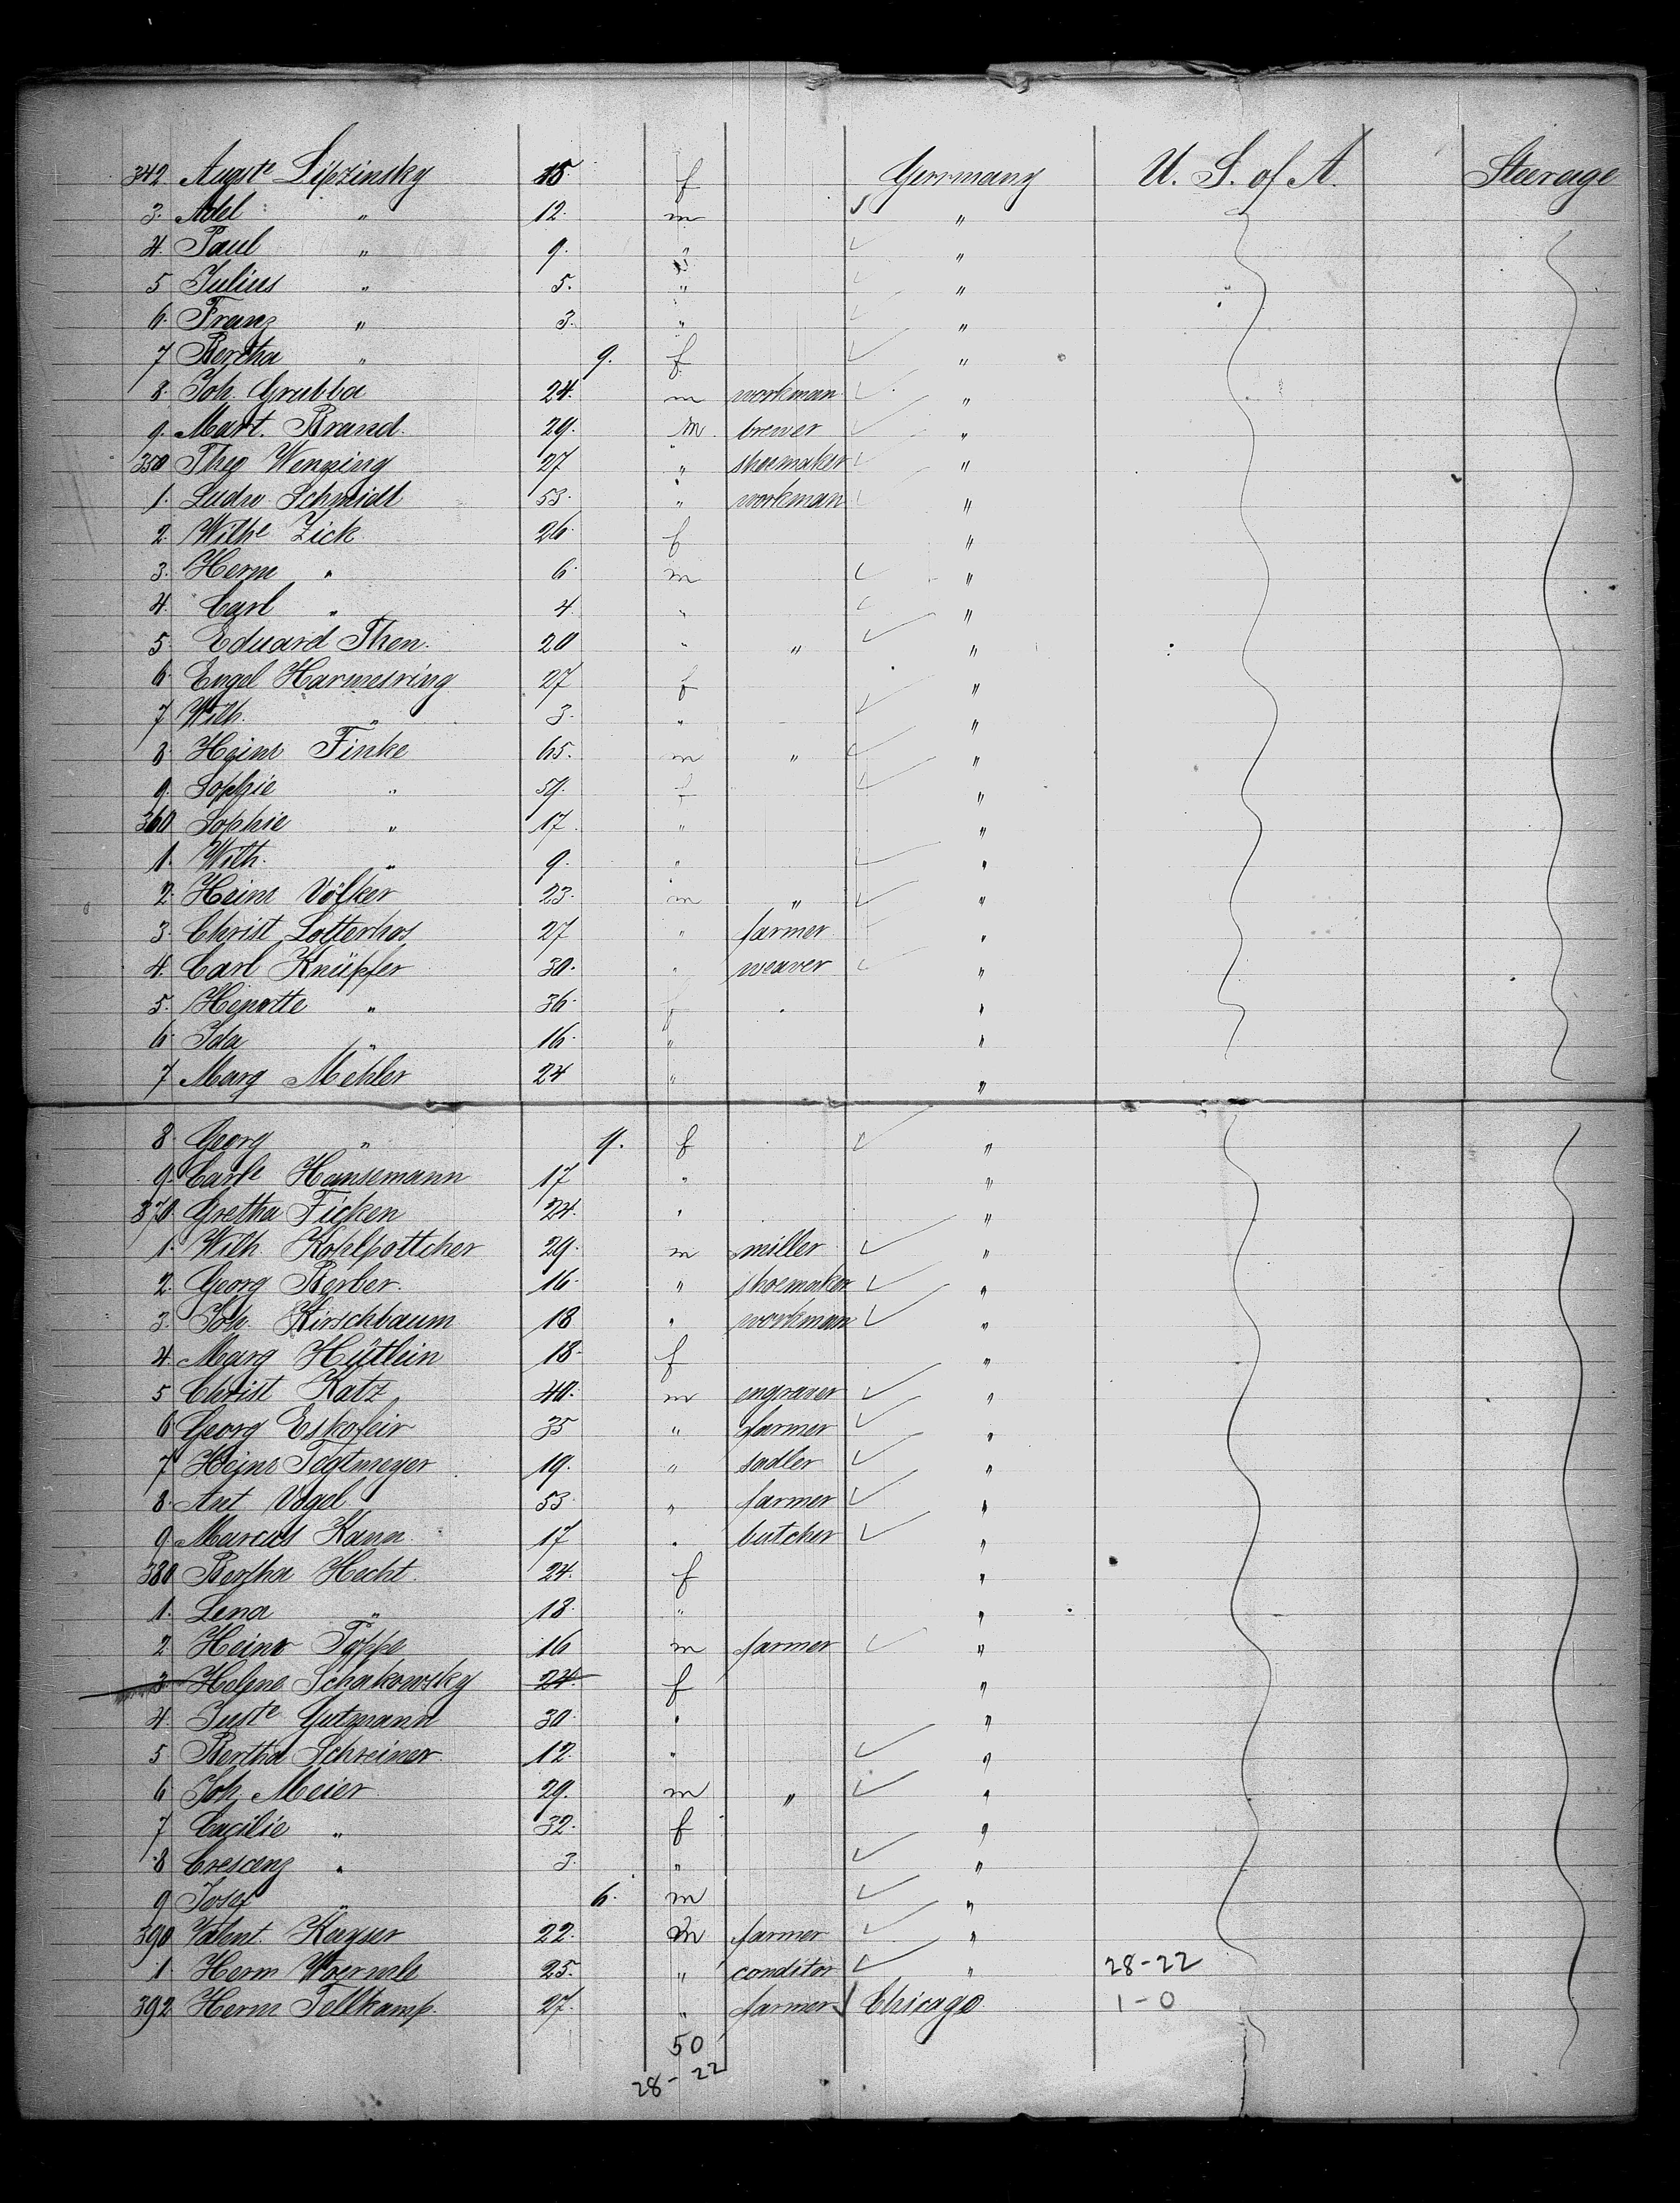 342 Auguste Lipzinsky 15 f Germany U. S. of A. Steerage
3. Adel " 12. m "
4. Paul " 9. " "
5 Julius " 5. " "
6. Franz " 3. " "
7 Bertha " 9. f "
8. Joh. Grubba 24. m workman "
9. Mart. Brand. 29. m. brewer "
350 Theo Wenping 27 " shoemaker "
1. Ludw. Schmidt 53. " workman "
2. Wilhe Zick 26. f "
3. Herm " 6. m "
4. Carl " 4. " "
5. Eduard Then. 20 " " "
6. Engel Harmsring 27 f "
7 Wilh. " 3. " "
8. Heinr Finke 65. m " "
9. Sophie " 59. f "
360 Sophie " 17. " "
1. Wilh. " 9. " "
2. Heinr Völker 23. m " "
3. Christ Lotterhos 27 " farmer "
4. Carl Knüpfer 30. " weaver "
5. " 36. f "
6. Ida " 16. " "
7 Marg Mehler 24 " "
8. Georg " 9. f "
9. Carle Hansemann 17 " "
370. Gretha Ficken 24. " "
1. Wilh Kohlpottcher 29. m miller "
2. Georg Berber. 16. " shoemaker "
3. Joh. Kirschbaum 18 " workman "
4. Marg Hütlein 18. f "
5 Christ Katz 40. m engraver "
6 Georg Eskofeir 35 " farmer "
7 Heinr Tegtmeyer 19. " sadler "
8. Ant Vogel 53. " farmer "
9. Marcus Kann. 17 " butcher "
380 Bertha Hecht. 24. f "
1. Lena " 18. " "
2 Heinr Töppe 16 m farmer "
3 Helene Schakowsky 24. f "
4. Juste Gutmann 30. " "
5 Bertha Schreiner 12. " "
6 Joh. Meier 29. m " "
7 Cacilie " 32. f "
8 Crescenz " 3. " "
9 Josef " 6. m "
390 Valent. Kayser 22. m farmer "
1. Herm Woernle 25. " conditor " 28-22
392 Herm Tellkamp. 27. " farmer Chicago. 1-0
50
28-22